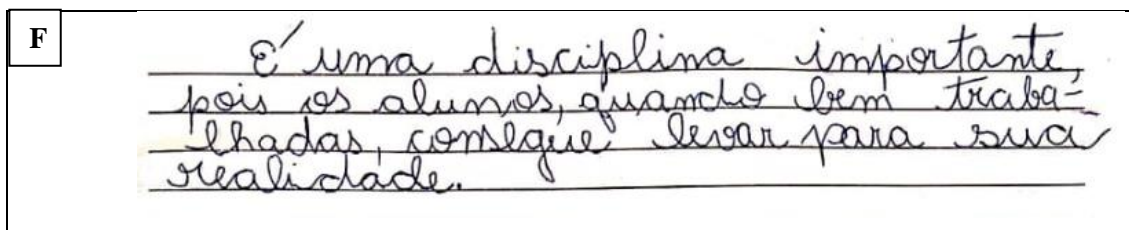 F
É uma disciplina importante,
pois os alunos, quando bem traba-
lhadas, consegue levar para sua
realidade.